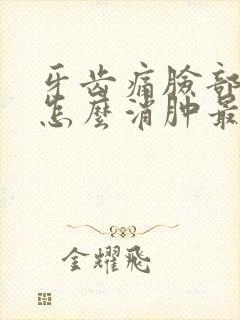 牙齿痛臉部
怎麼消肿最
金耀飛